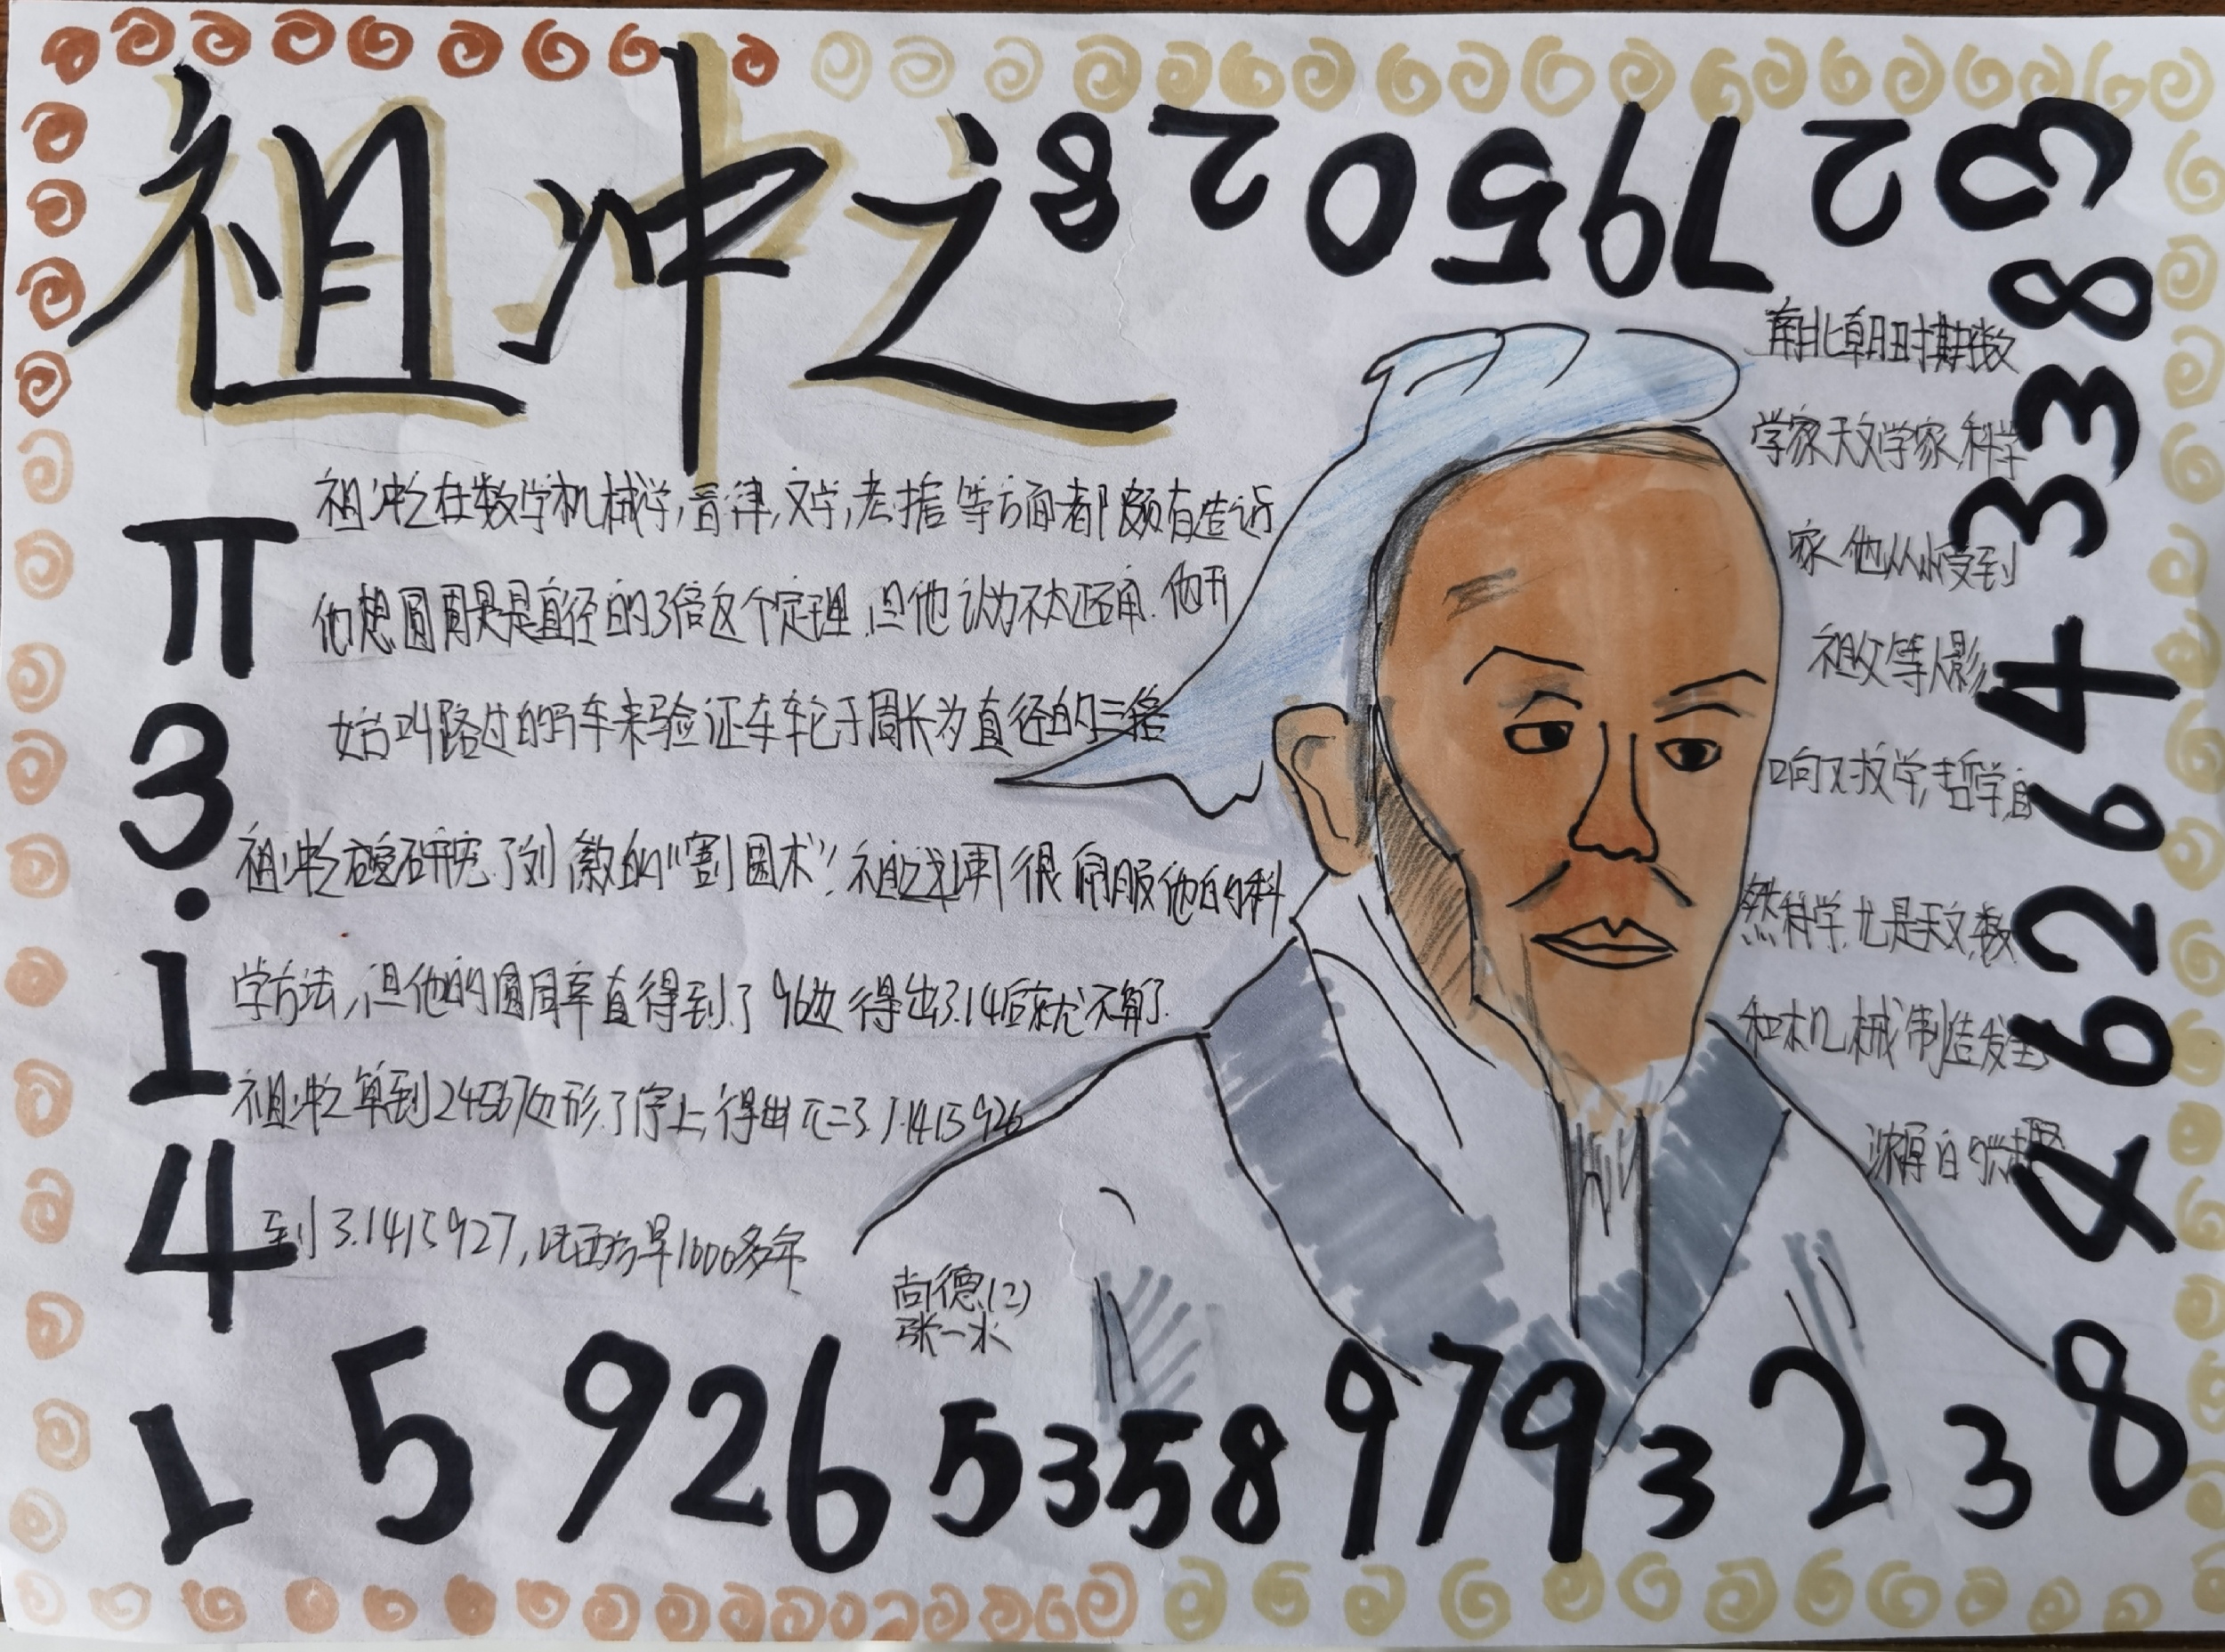 祖冲之
祖冲之在数学机械学,音律,文学,考据等方面都颇有造诣
他想圆周是直径的3倍这个定理.但他认为不太正确.他开
始叫路过的马车来验证车轮子周长为直径的三倍
祖冲之研究了刘徽的"割圆术",祖之很佩服他的科
学方法,但他的圆周率直得到了96边得出3.14后就不算了.
祖冲之算到24567边形了停上,得出π=3.1415926
到3.1415927,比西方早1000多年
尚德(2)
张一水
南北朝时期数
学家天文学家,科学
家.他从小受到
祖父等人影
响对文学,哲学,自
然科学.尤是天文,数
和机械制造发生
浓厚的兴趣
π
3.14
1592653589793238
462643383
2795028